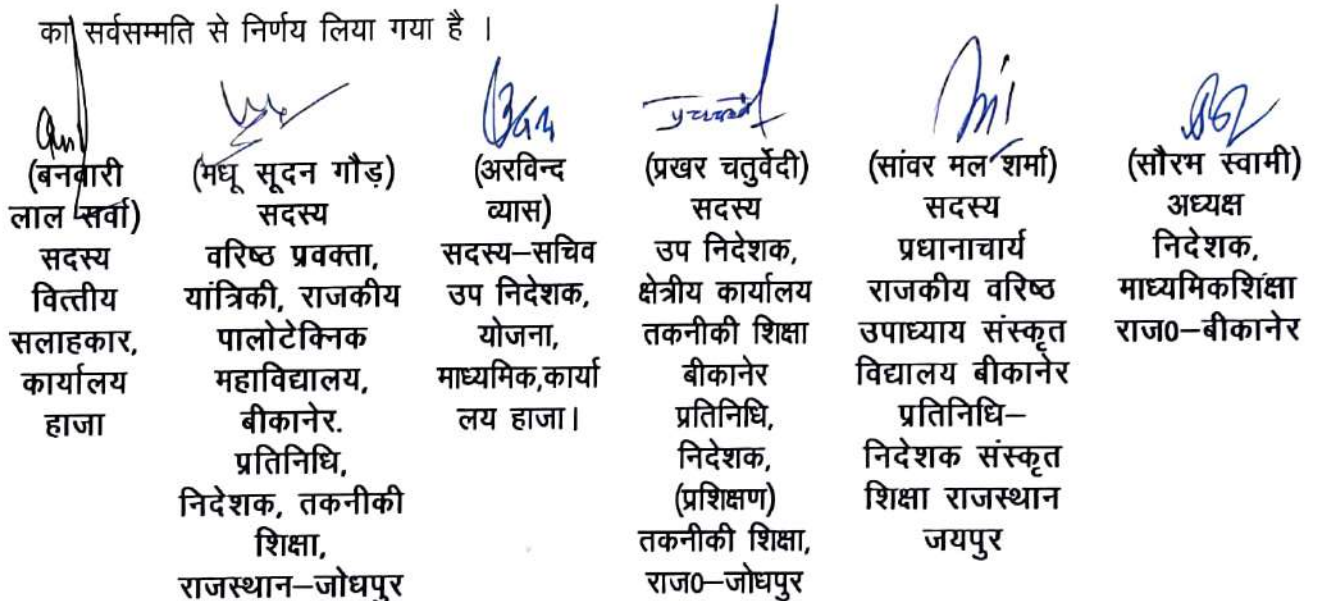 का सर्वसम्मति से निर्णय लिया गया है ।
(बनवारी
लाल सर्वा)
सदस्य
वित्तीय
सलाहकार,
कार्यालय
हाजा
(मधू सूदन गौड़)
सदस्य
वरिष्ठ प्रवक्ता,
यांत्रिकी, राजकीय
पालोटेक्निक
महाविद्यालय,
बीकानेर.
प्रतिनिधि,
निदेशक, तकनीकी
शिक्षा,
राजस्थान–जोधपुर
(अरविन्द
व्यास)
सदस्य–सचिव
उप निदेशक,
योजना,
माध्यमिक,कार्या
लय हाजा।
(प्रखर चतुर्वेदी)
सदस्य
उप निदेशक,
क्षेत्रीय कार्यालय
तकनीकी शिक्षा
बीकानेर
प्रतिनिधि,
निदेशक,
(प्रशिक्षण)
तकनीकी शिक्षा,
राज0–जोधपुर
(सांवर मल शर्मा)
सदस्य
प्रधानाचार्य
राजकीय वरिष्ठ
उपाध्याय संस्कृत
विद्यालय बीकानेर
प्रतिनिधि–
निदेशक संस्कृत
शिक्षा राजस्थान
जयपुर
(सौरभ स्वामी)
अध्यक्ष
निदेशक,
माध्यमिकशिक्षा
राज0–बीकानेर